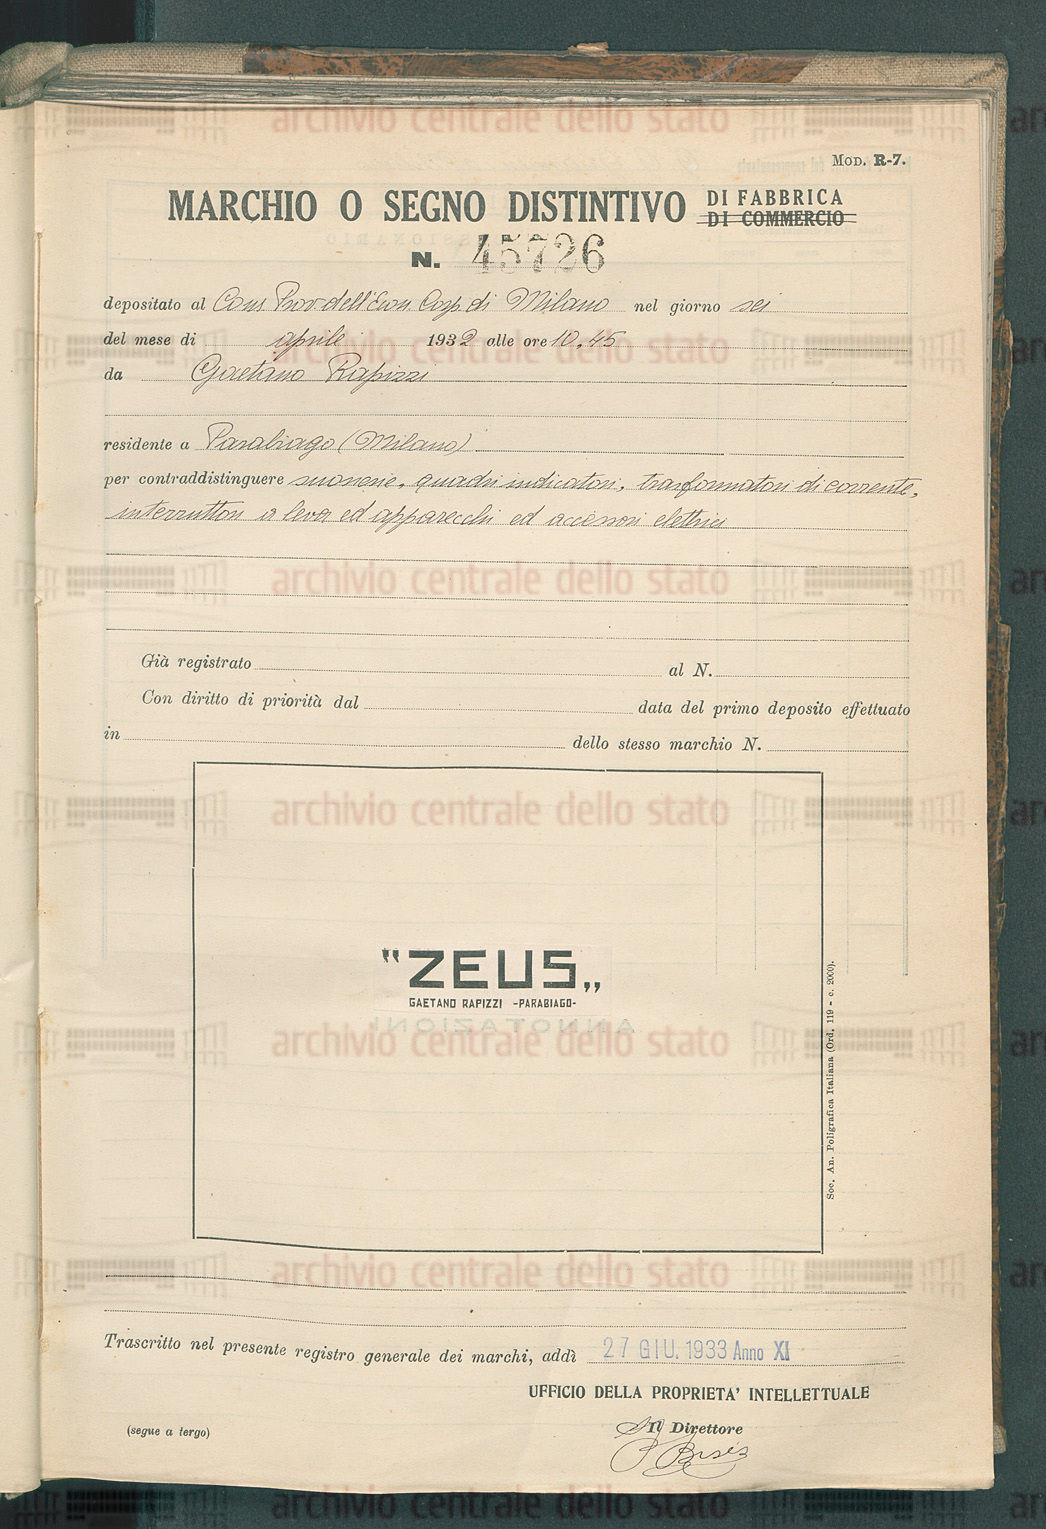 MOD. R-7.
MARCHIO O SEGNO DISTINTIVO DI FABBRICA
DI COMMERCIO
N. 45726
depositato al Cons. Prov. dell'Econ. Corp. di Milano nel giorno sei
del mese di aprile 1932 alle ore 10,45
da Gaetano Rapizzi
residente a Parabiago (Milano)
per contraddistinguere suonerie, quadri indicatori, trasformatori di corrente,
interruttori a leva ed apparecchi ed accessori elettrici
Già registrato al N.
Con diritto di priorità dal data del primo deposito effettuato
in dello stesso marchio N.
"ZEUS„
GAETANO RAPIZZI -PARABIAGO-
ANNOTAZIONI
Soc. An. Poligrafica Italiana (Ord. 119 - c. 2000).
Trascritto nel presente registro generale dei marchi, addì 27 GIU. 1933 Anno XI
UFFICIO DELLA PROPRIETA' INTELLETTUALE
Il Direttore
(segue a tergo)
archivio centrale dello stato